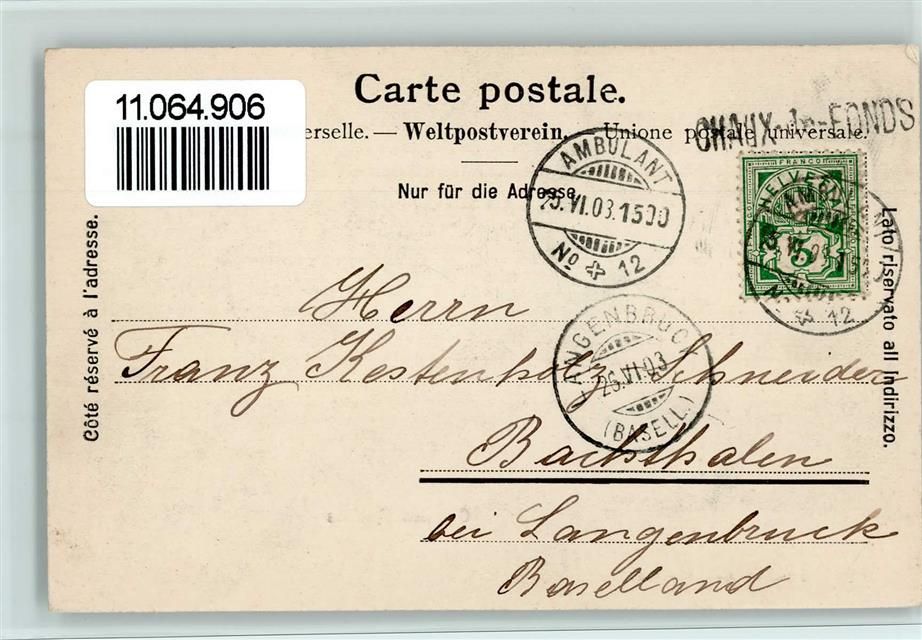 11.064.906
Carte postale.
CHAUX-de-FONDS
erselle. — Weltpostverein. — Unione postale universale.
Nur für die Adresse
Côté réservé à l'adresse.
Lato riservato all Indirizzo.
AMBULANT
25.VI.03.1500
No 12
FRANCO
HELVETIA
5
12
Herrn
Franz Kestenholz, Schneider
LANGENBRUCK
26.VI.03
(BASELL.)
Bachthalen
bei Langenbruck
Baselland